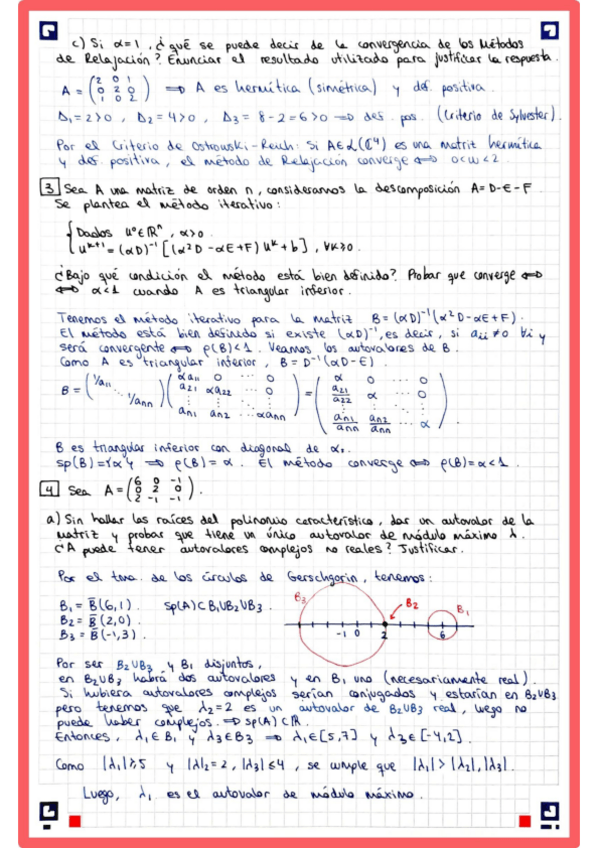 c) Si α=1, ¿qué se puede decir de la convergencia de los Métodos
de Relajación? Enunciar el resultado utilizado para justificar la respuesta.
A = (2 0 1 / 0 2 0 / 1 0 2) ⟹ A es hermítica (simétrica) y def. positiva.
Δ₁=2>0, Δ₂=4>0, Δ₃=8-2=6>0 ⟹ def. pos. (Criterio de Sylvester)
Por el Criterio de Ostrowski-Reich: Si A∈L(ℂ⁴) es una matriz hermítica
y def. positiva, el método de Relajación converge ⟺ 0<ω<2.
3 Sea A una matriz de orden n, consideramos la descomposición A=D-E-F.
Se plantea el método iterativo:
{ Dados u⁰∈ℝⁿ, α>0.
u^{k+1}=(αD)^{-1}[(α²D-αE+F)u^k+b], ∀k≥0.
¿Bajo qué condición el método está bien definido? Probar que converge ⟺
⟺ α<1 cuando A es triangular inferior.
Tenemos el método iterativo para la matriz B=(αD)^{-1}(α²D-αE+F).
El método está bien definido si existe (αD)^{-1}, es decir, si aᵢᵢ≠0 ∀i y
será convergente ⟺ ρ(B)<1. Veamos los autovalores de B.
Como A es triangular inferior, B=D^{-1}(αD-E).
B = (1/a₁₁ ⋱ 1/aₙₙ)(αa₁₁ 0 ⋯ 0 / a₂₁ αa₂₂ ⋯ 0 / ⋮ ⋮ ⋱ ⋮ / aₙ₁ aₙ₂ ⋯ αaₙₙ) = (α 0 ⋯ 0 / a₂₁/a₂₂ α ⋯ 0 / ⋮ ⋮ ⋱ ⋮ / aₙ₁/aₙₙ aₙ₂/aₙₙ ⋯ α)
B es triangular inferior con diagonal de αs.
sp(B)={α} ⟹ ρ(B)=α. El método converge ⟺ ρ(B)=α<1.
4 Sea A=(6 0 -1 / 0 2 0 / 2 -1 -1).
a) Sin hallar las raíces del polinomio característico, dar un autovalor de la
matriz y probar que tiene un único autovalor de módulo máximo λ.
¿A puede tener autovalores complejos no reales? Justificar.
Por el tma. de los círculos de Gerschgorin, tenemos:
B₁=B̄(6,1). sp(A)⊂B₁∪B₂∪B₃.
B₂=B̄(2,0).
B₃=B̄(-1,3).
B₃ B₂ B₁
-1 0 2 6
Por ser B₂∪B₃ y B₁ disjuntos,
en B₂∪B₃ habrá dos autovalores y en B₁ uno (necesariamente real).
Si hubiera autovalores complejos serían conjugados y estarían en B₂∪B₃
pero tenemos que λ₂=2 es un autovalor de B₂∪B₃ real, luego no
puede haber complejos. ⟹ sp(A)⊂ℝ.
Entonces, λ₁∈B₁ y λ₃∈B₃ ⟹ λ₁∈[5,7] y λ₃∈[-4,2].
Como |λ₁|≥5 y |λ|₂=2, |λ₃|≤4, se cumple que |λ₁|>|λ₂|,|λ₃|.
Luego, λ₁ es el autovalor de módulo máximo.